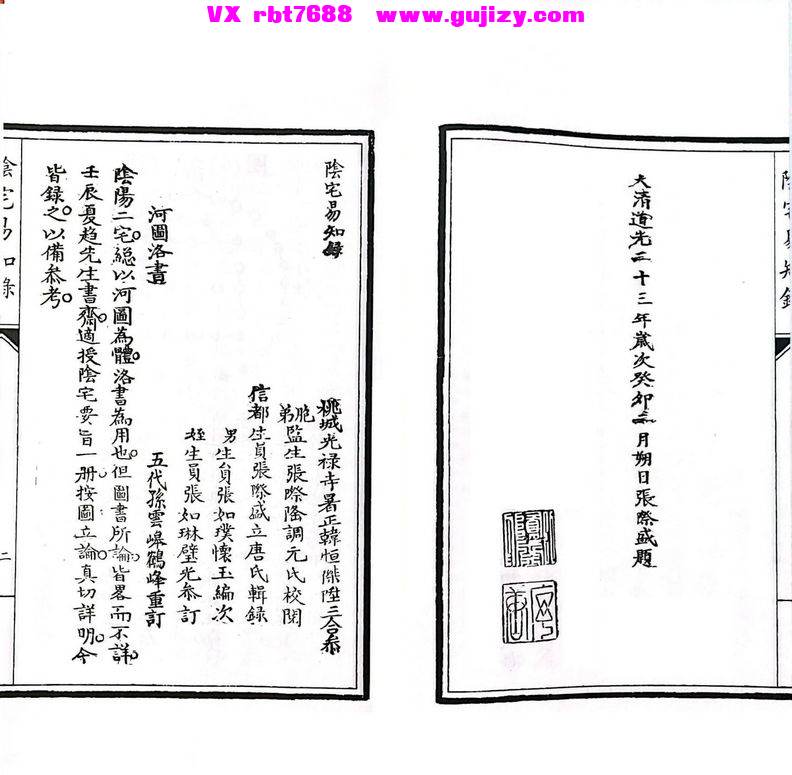 VX rbt7688 www.gujizy.com
大清道光二十三年歲次癸卯三月朔日張際盛題
陰宅易知錄
陰宅易知錄
桃城光祿寺署正韓恒傑陞三合參
胞弟監生張際隆調元氏校閱
信都生員張際盛立唐氏輯錄
男生員張如璞懷玉編次
姪生員張如琳璧光參訂
五代孫雲嶂鶴峰重訂
河圖洛書
陰陽二宅總以河圖為體洛書為用也但圖書所論皆畧而不詳
壬辰夏趙先生書齋適授陰宅要旨一册按圖立論真切詳明今
皆錄之以備參考
陰宅易知錄
二